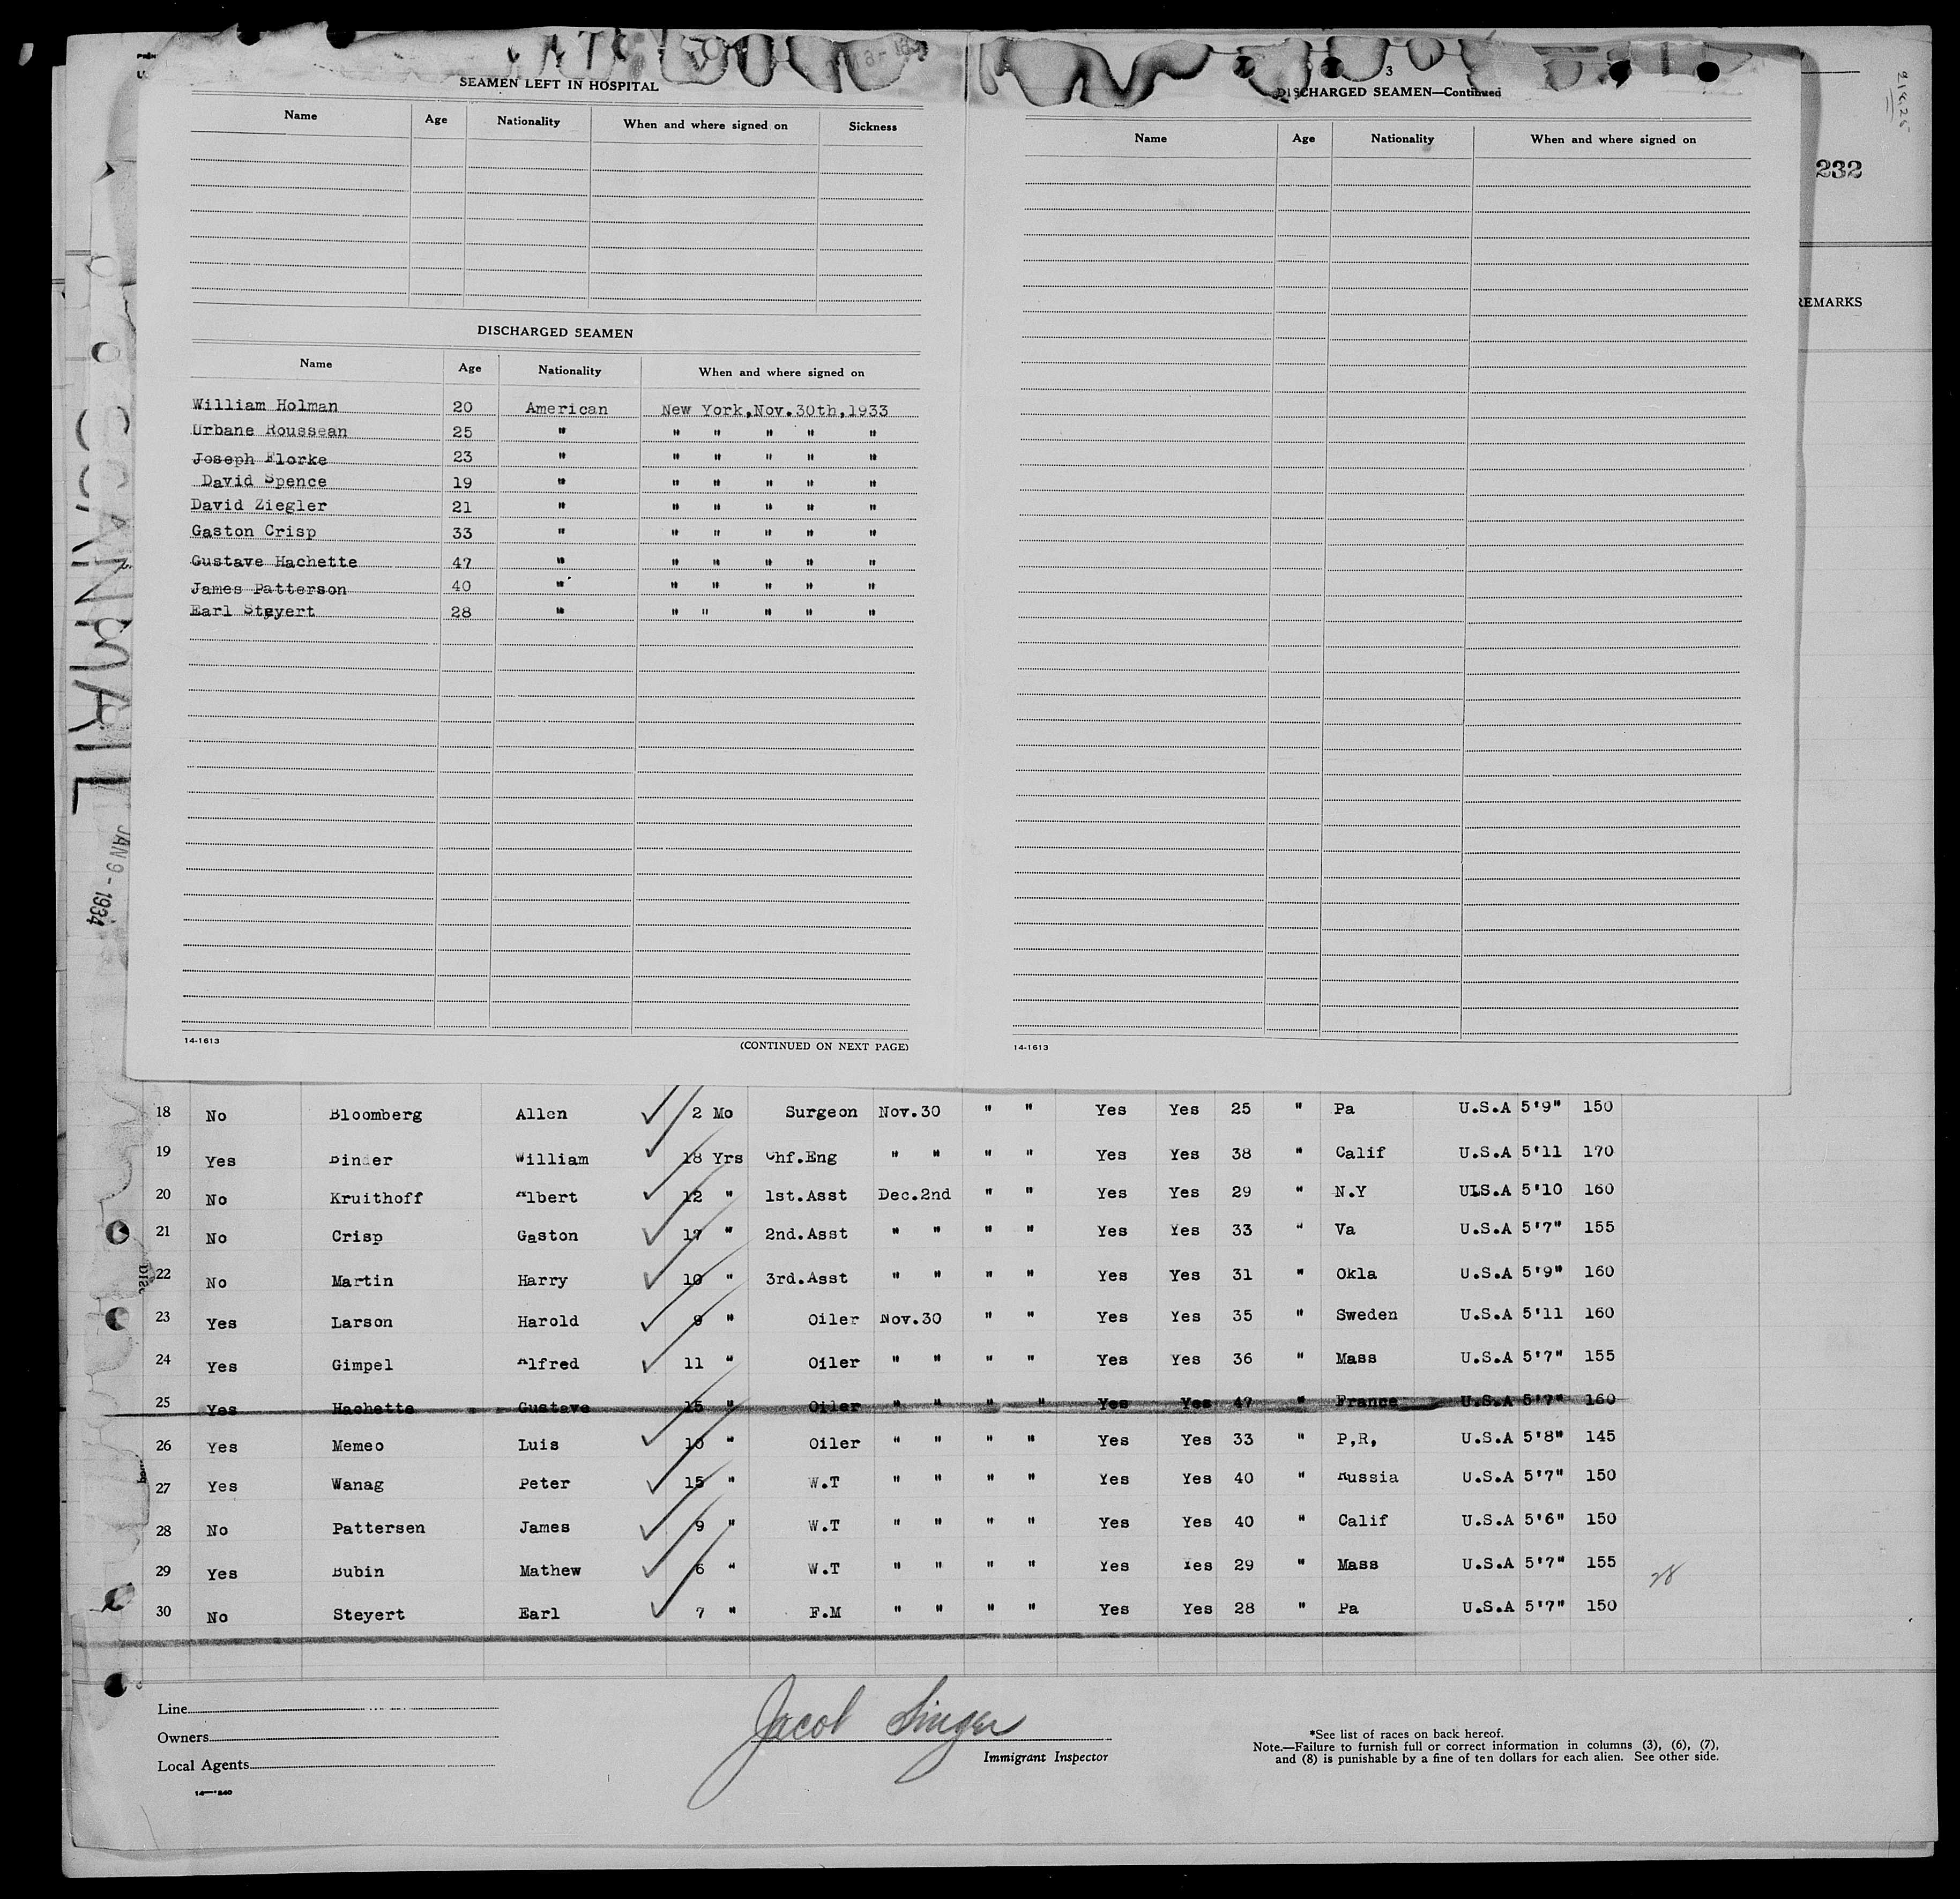 SEAMEN LEFT IN HOSPITAL
Name Age Nationality When and where signed on Sickness
DISCHARGED SEAMEN
Name Age Nationality When and where signed on
William Holman 20 American New York,Nov.30th,1933
Urbane Roussean 25 " " " " " "
Joseph Florke 23 " " " " " "
David Spence 19 " " " " " "
David Ziegler 21 " " " " " "
Gaston Crisp 33 " " " " " "
Gustave Hachette 47 " " " " " "
James Patterson 40 " " " " " "
Earl Steyert 28 " " " " " "
14-1613 (CONTINUED ON NEXT PAGE)
3
DISCHARGED SEAMEN—Continued
Name Age Nationality When and where signed on
14-1613
232
REMARKS
JAN 9 - 1934
18 No Bloomberg Allen 2 Mo Surgeon Nov.30 " " Yes Yes 25 " Pa U.S.A 5'9" 150
19 Yes Binder William 18 Yrs Chf.Eng " " " " Yes Yes 38 " Calif U.S.A 5'11 170
20 No Kruithoff Albert 12 " 1st.Asst Dec.2nd " " Yes Yes 29 " N.Y UIS.A 5'10 160
21 No Crisp Gaston 17 " 2nd.Asst " " " " Yes Yes 33 " Va U.S.A 5'7" 155
22 No Martin Harry 10 " 3rd.Asst " " " " Yes Yes 31 " Okla U.S.A 5'9" 160
23 Yes Larson Harold 9 " Oiler Nov.30 " " Yes Yes 35 " Sweden U.S.A 5'11 160
24 Yes Gimpel Alfred 11 " Oiler " " " " Yes Yes 36 " Mass U.S.A 5'7" 155
25 Yes Hachette Gustave 15 " Oiler " " " " Yes Yes 47 " France U.S.A 5'7" 160
26 Yes Memeo Luis 10 " Oiler " " " " Yes Yes 33 " P,R, U.S.A 5'8" 145
27 Yes Wanag Peter 15 " W.T " " " " Yes Yes 40 " Russia U.S.A 5'7" 150
28 No Pattersen James 9 " W.T " " " " Yes Yes 40 " Calif U.S.A 5'6" 150
29 Yes Bubin Mathew 6 " W.T " " " " Yes Yes 29 " Mass U.S.A 5'7" 155
28
30 No Steyert Earl 7 " F.M " " " " Yes Yes 28 " Pa U.S.A 5'7" 150
Line
Owners
Local Agents
Jacob Singer
Immigrant Inspector
*See list of races on back hereof.
Note.—Failure to furnish full or correct information in columns (3), (6), (7),
and (8) is punishable by a fine of ten dollars for each alien. See other side.